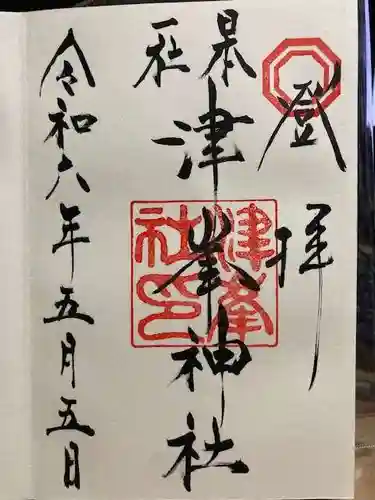 登拝
県社
津峯神社
津峯
社印
令和六年五月五日